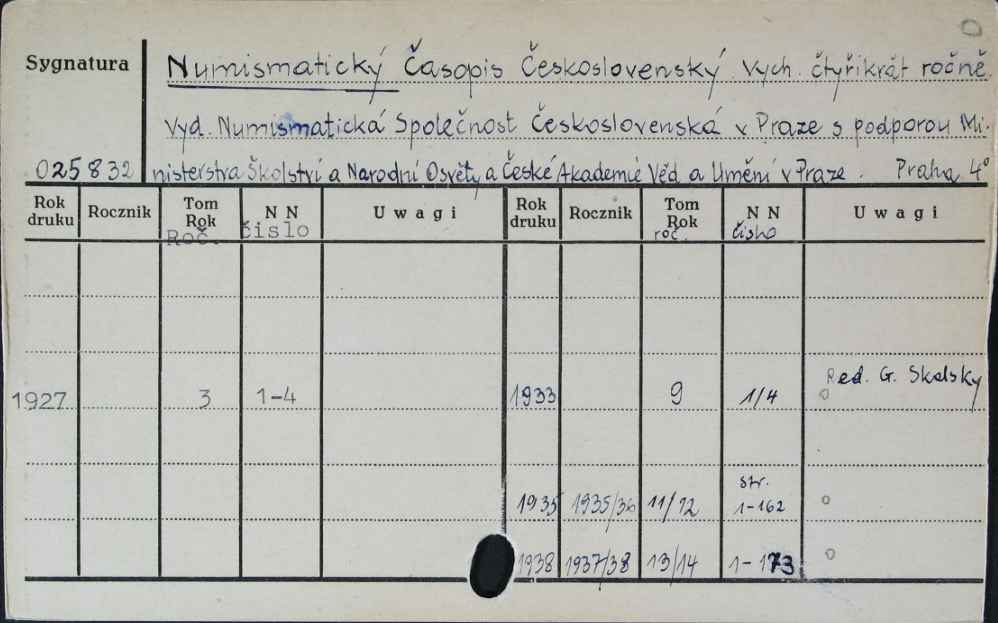 Sygnatura Numismatický Časopis Československý. Vych. čtyřikrát ročně.
Vyd. Numismatická Společnost Československá v Praze s podporou Mi-
025832 nisterstva Školství a Narodní Osvěty a České Akademié Věd a Umění v Praze. Praha 4°
Rok druku Rocznik Tom Rok N N Uwagi Rok druku Rocznik Tom Rok N N Uwagi
Roč. číslo roč. číslo
Red. G. Skalsky
1927 3 1-4 1933 9 1/4
str.
1935 1935/36 11/12 1-162
1938 1937/38 13/14 1-173